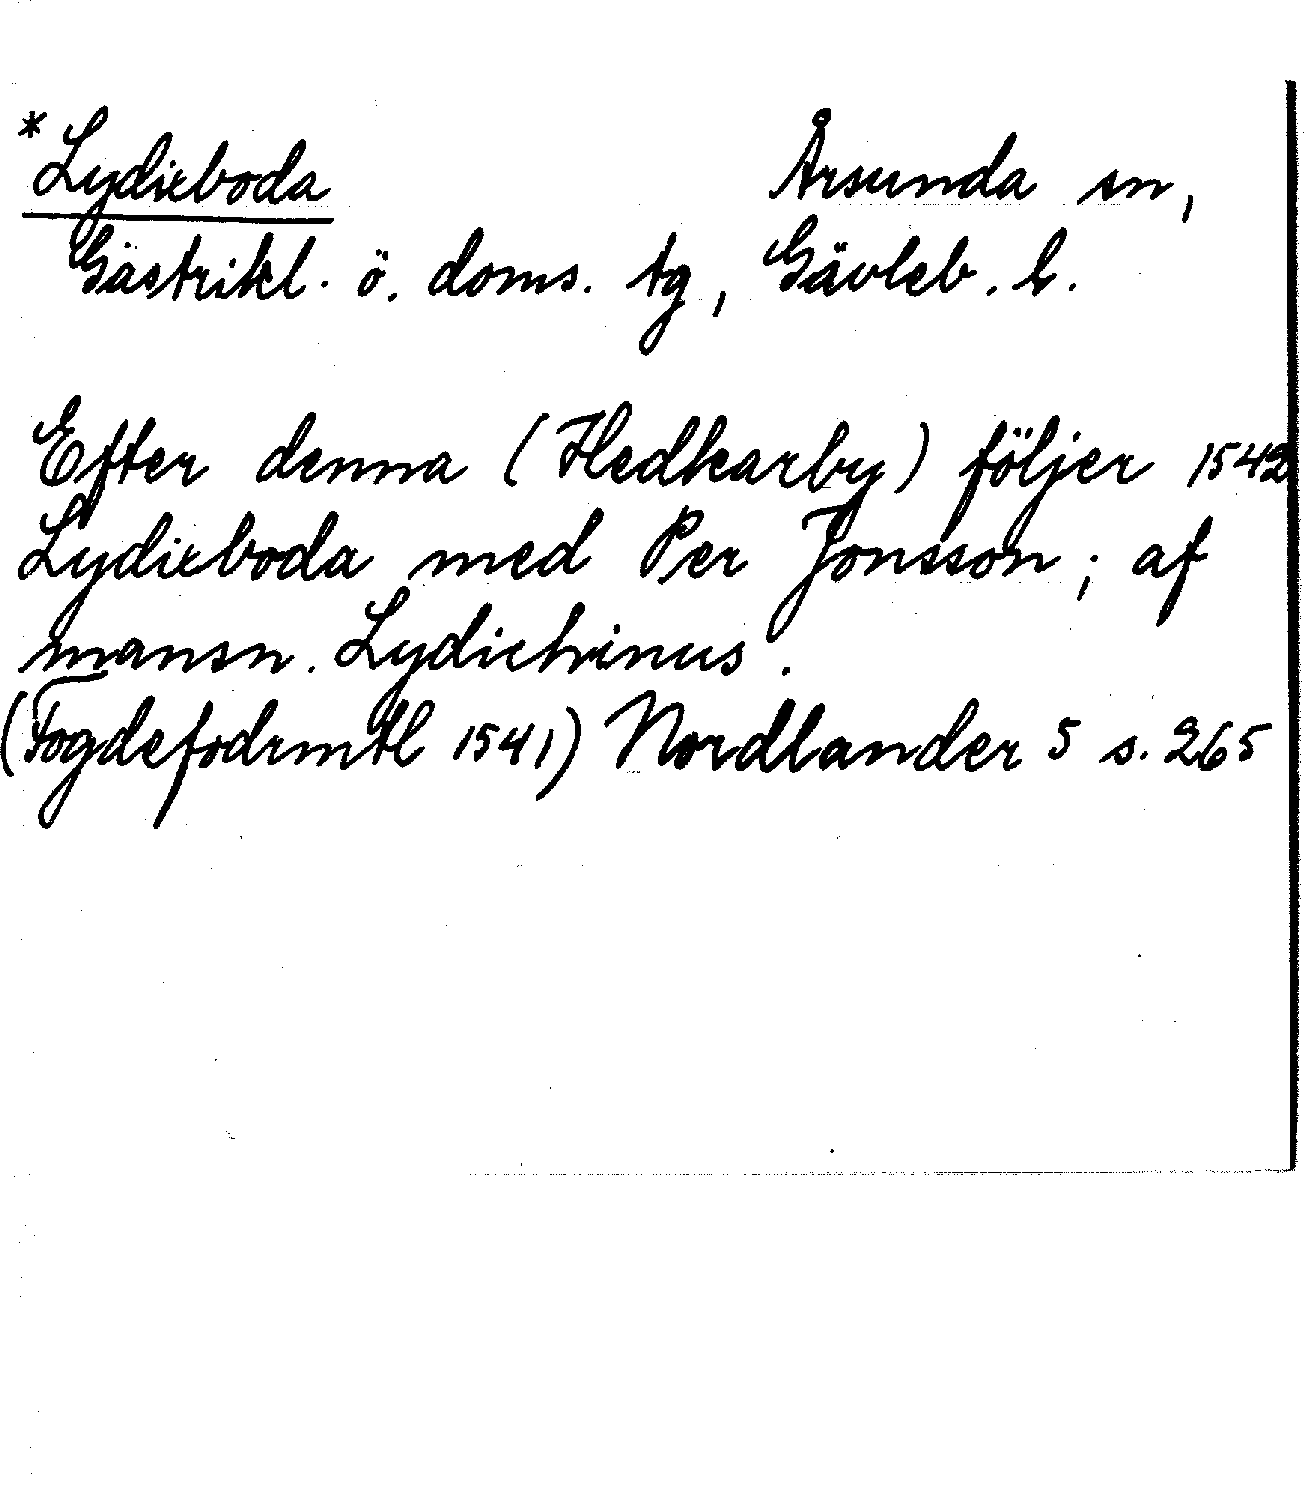 *Lydixboda Årsunda sn,
Gästrikl. ö. doms. tg, Gävleb. l.
Efter denna (Hedkarby) följer 1542
Lydixboda med Per Jonsson; af
mansn. Lydichinus.
(Fogdefodrmtl 1541) Nordlander 5 s. 265